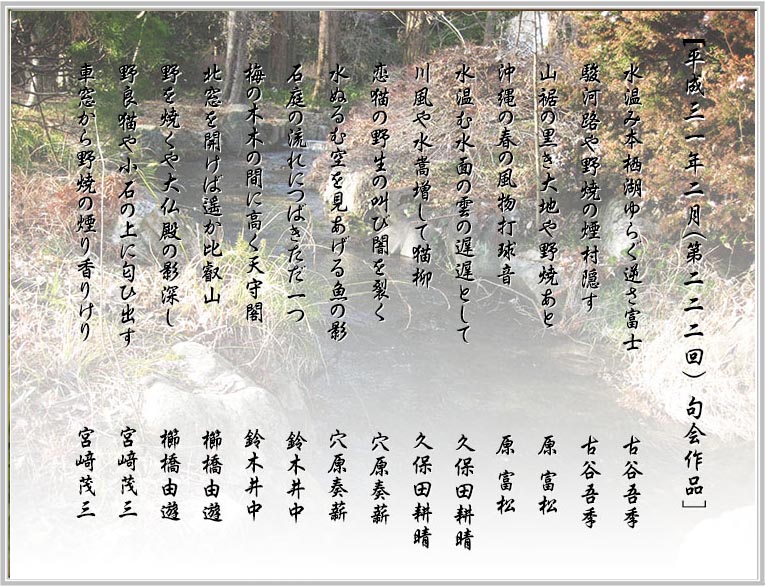 【平成三一年二月（第二二二回） 句会作品】
水温み本栖湖ゆらぐ逆さ富士 古谷吾季
駿河路や野焼の煙村隠す 古谷吾季
山裾の黒き大地や野焼あと 原 富松
沖縄の春の風物打球音 原 富松
水温む水面の雲の遅遅として 久保田耕晴
川風や水嵩増して猫柳 久保田耕晴
恋猫の野生の叫び闇を裂く 穴原奏薪
水ぬるむ空を見あげる魚の影 穴原奏薪
石庭の流れにつばきただ一つ 鈴木井中
梅の木木の間に高く天守閣 鈴木井中
北窓を開けば遥か比叡山 櫛橋由遊
野を焼くや大仏殿の影深し 櫛橋由遊
野良猫や小石の上に匂ひ出す 宮﨑茂三
車窓から野焼の煙り香りけり 宮﨑茂三